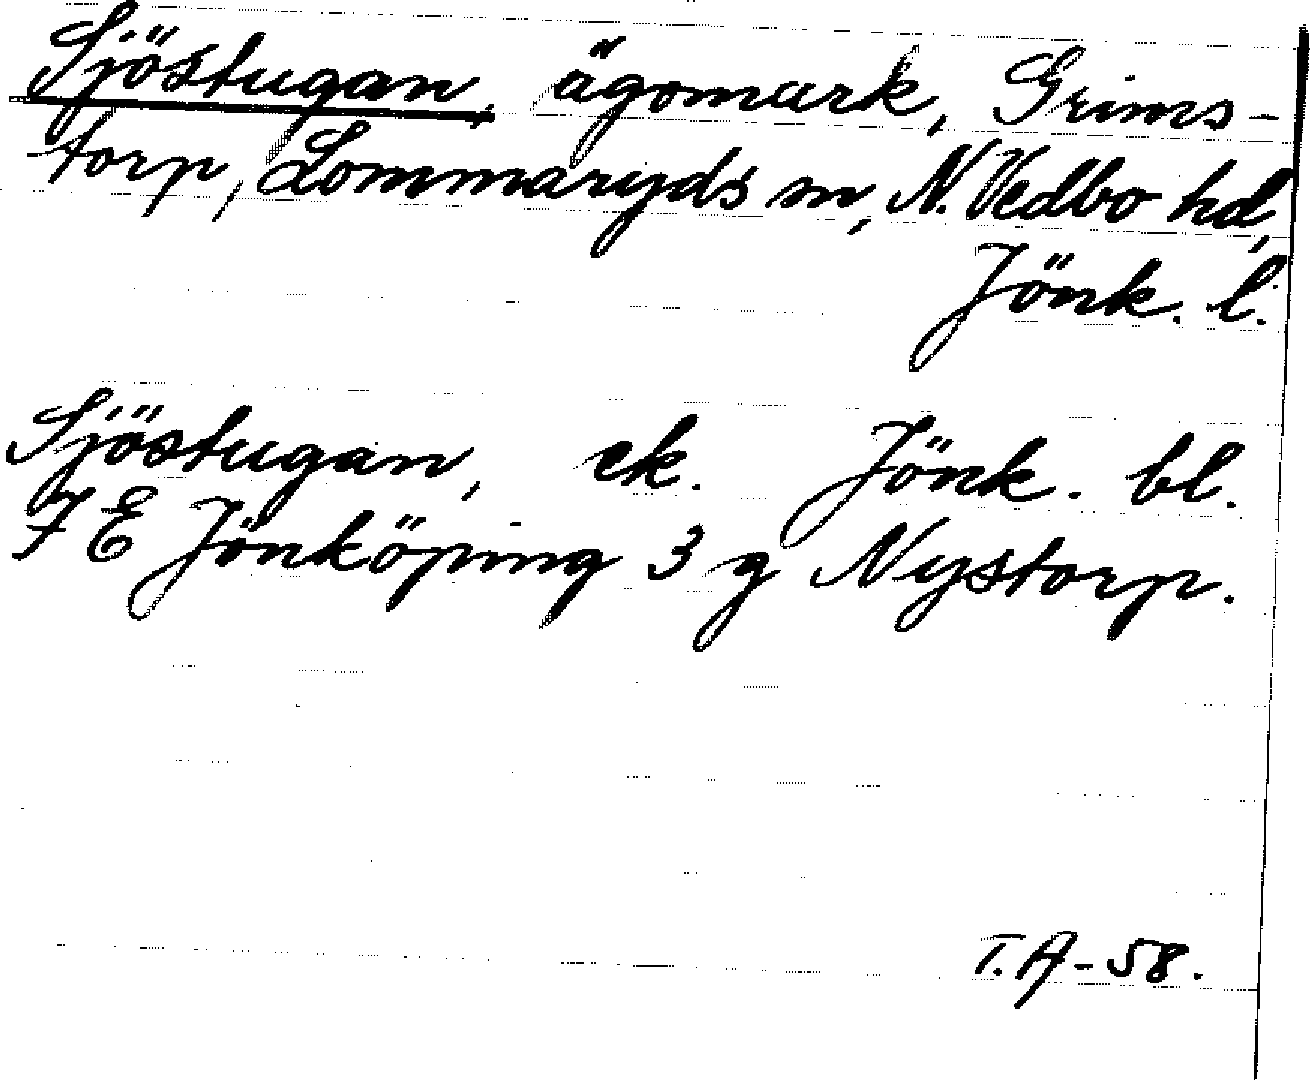 Sjöstugan, ägomark, Grims-
torp, Lommaryds sn, N. Vedbo hd,
Jönk. l.
Sjöstugan, ek. Jönk. bl.
7 E Jönköping 3 g Nystorp.
T.A-58.